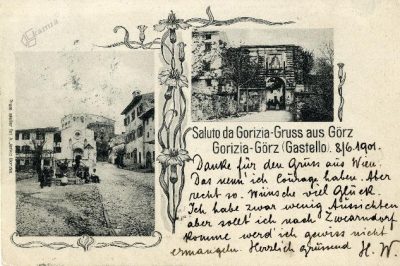 Kamra
Saluto da Gorizia-Gruss aus Görz
Gorizia-Görz (Castello). 8/6. 1901.
Danke für den Gruss aus Wien.
Das nenn' ich Courage haben. Aber
recht so. Wünsche viel Glück.
Ich habe zwar wenig Aussichten
aber sollt ich nach
komme werd ich gewiss nicht
ermangeln. Herzlich grüssend H. W.